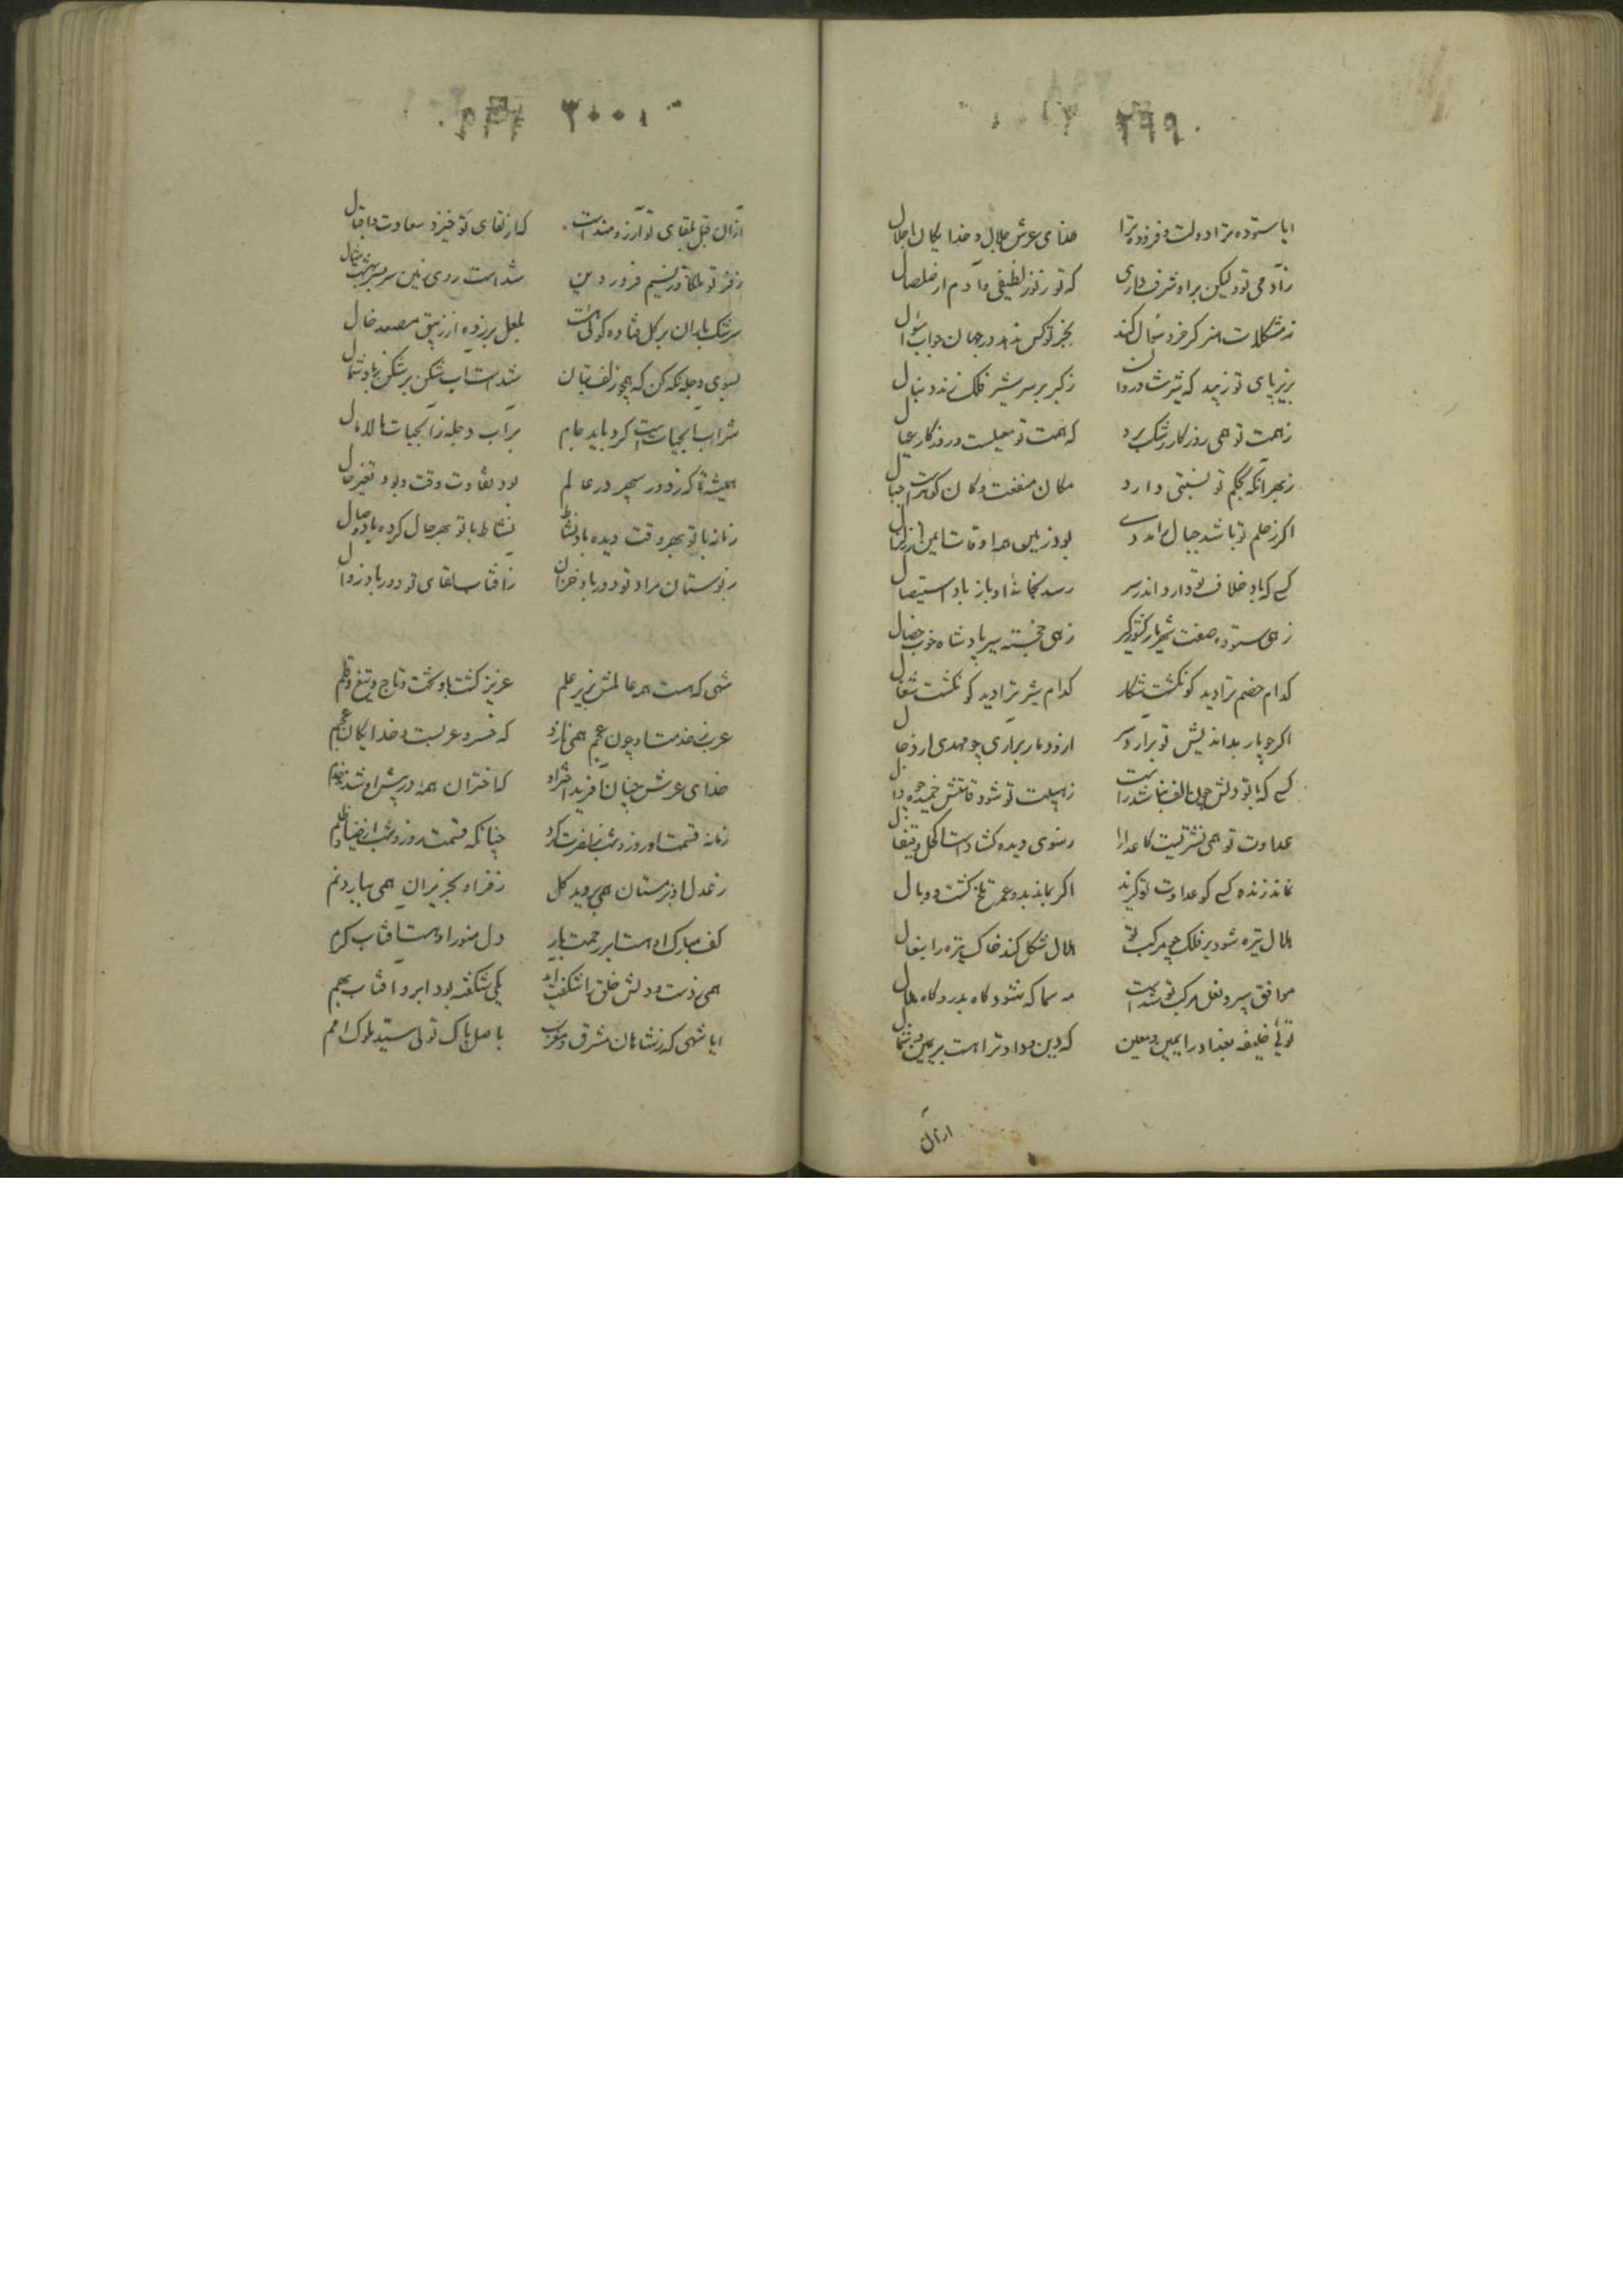 ۲۹۹
ایا ستوده ترا دولت و فزوده ترا خدای عرش جلال و خدایگان اجلال
زآدمی تو ولیکن براو شرف داری که تو ز نور لطیفی و آدم از صلصال
ز مشکلات هنر گر خرد سؤال کند بجز تو کس ندهد در جهان جواب سؤال
بزیر پای تو زیبد که شرش دوران ز کبر بر سر شیر فلک زند دنبال
ز همت تو همی روزگار رشک برد که همت تو معیلست و روزگار عیال
ز بهر آنکه بحکم تو نسبتی دارد مکان منفعت و کان گوهرست جبال
اگر ز حلم تو باشد جبال را مددی بود زمین همه اوقات ایمن از زلزال
کسی که باد خلاف تو دارد اندر سر رسد بخانه او باز باد استیصال
زهی ستوده صفت شهریار کشورگیر زهی خجسته سیر پادشاه خوب خصال
کدام خصم ترا دید کو نگشت شکار کدام شیر ترا دید کو نگشت شغال
اگر چو مار بداندیش تو برآرد سر ازو دمار برآری چو مهدی از دجال
کسی که با تو دلش چون الف نباشد راست ز هیبت تو شود قامتش خمیده چو دال
عداوت تو همی نشتریست کاعدا را
نماند زنده کسی کو عداوت تو گزید اگر بماند بدو عمر تلخ گشت و وبال
هلال تیره شود بر فلک چو مرکب تو هلال شکل کند خاک تیره را بنعال
موافق سپر و نعل مرکب تو شدست مه سما که شود گاه بدر و گاه هلال
توئی خلیفه بغداد را یمین و معین که دین و داد ترا هست بر یمین و شمال
ازان
۳۰۰
ازان قبل بلقای تو آرزومندست که از لقای تو خیزد سعادت و اقبال
ز فر تو ملکا وز نسیم فروردین شدست روی زمین سر بسر بهشت مثال
سرشک باران بر گل فتاده گوئی هست بلعل بر زده از زیبق مصعد خال
بسوی دجله نگه کن که همچو زلف بتان شدست آب شکن بر شکن ز باد شمال
شراب آب حیاتست کرد باید جام بر آب دجله ز آب حیات مالامال
همیشه تا که ز دور سپهر در عالم بود تفاوت وقت و بود تغیر حال
زمانه با تو بهر وقت دیده باد نشاط نشاط با تو بهر حال کرده باد وصال
ز بوستان مراد تو دور باد خزان ز آفتاب بقای تو دور باد زوال
شهی که هست همه عالمش بزیر علم عزیز گشت باو تخت و تاج و تیغ و قلم
عرب بخدمت او چون عجم همی نازد که خسرو عربست و خدایگان عجم
خدای عرش چنان آفرید اختر او که اختران همه در پیش او شدند خدم
زمانه قسمت او روز و شب بنصرت کرد چنانکه قسمت روز و شب از ضیا و ظلم
ز عدل او بزمستان همی بروید گل ز فر او بحزیران همی ببارد نم
کف مبارک او هست ابر رحمت بار دل منور او هست آفتاب کرم
همی ز دست و دلش خلق را شگفت آید یکی شگفته بود ابر و آفتاب بهم
ایا شهی که ز شاهان مشرق و مغرب باصل پاک توئی سید ملوک امم